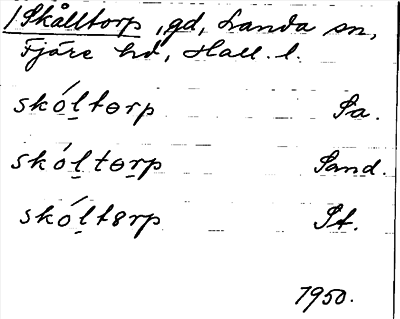 1 Skålltorp, gd, Landa sn,
Fjäre hd, Hall. l.
skóltorp Sa.
skóltorp Sand.
skóltorp St.
1950.